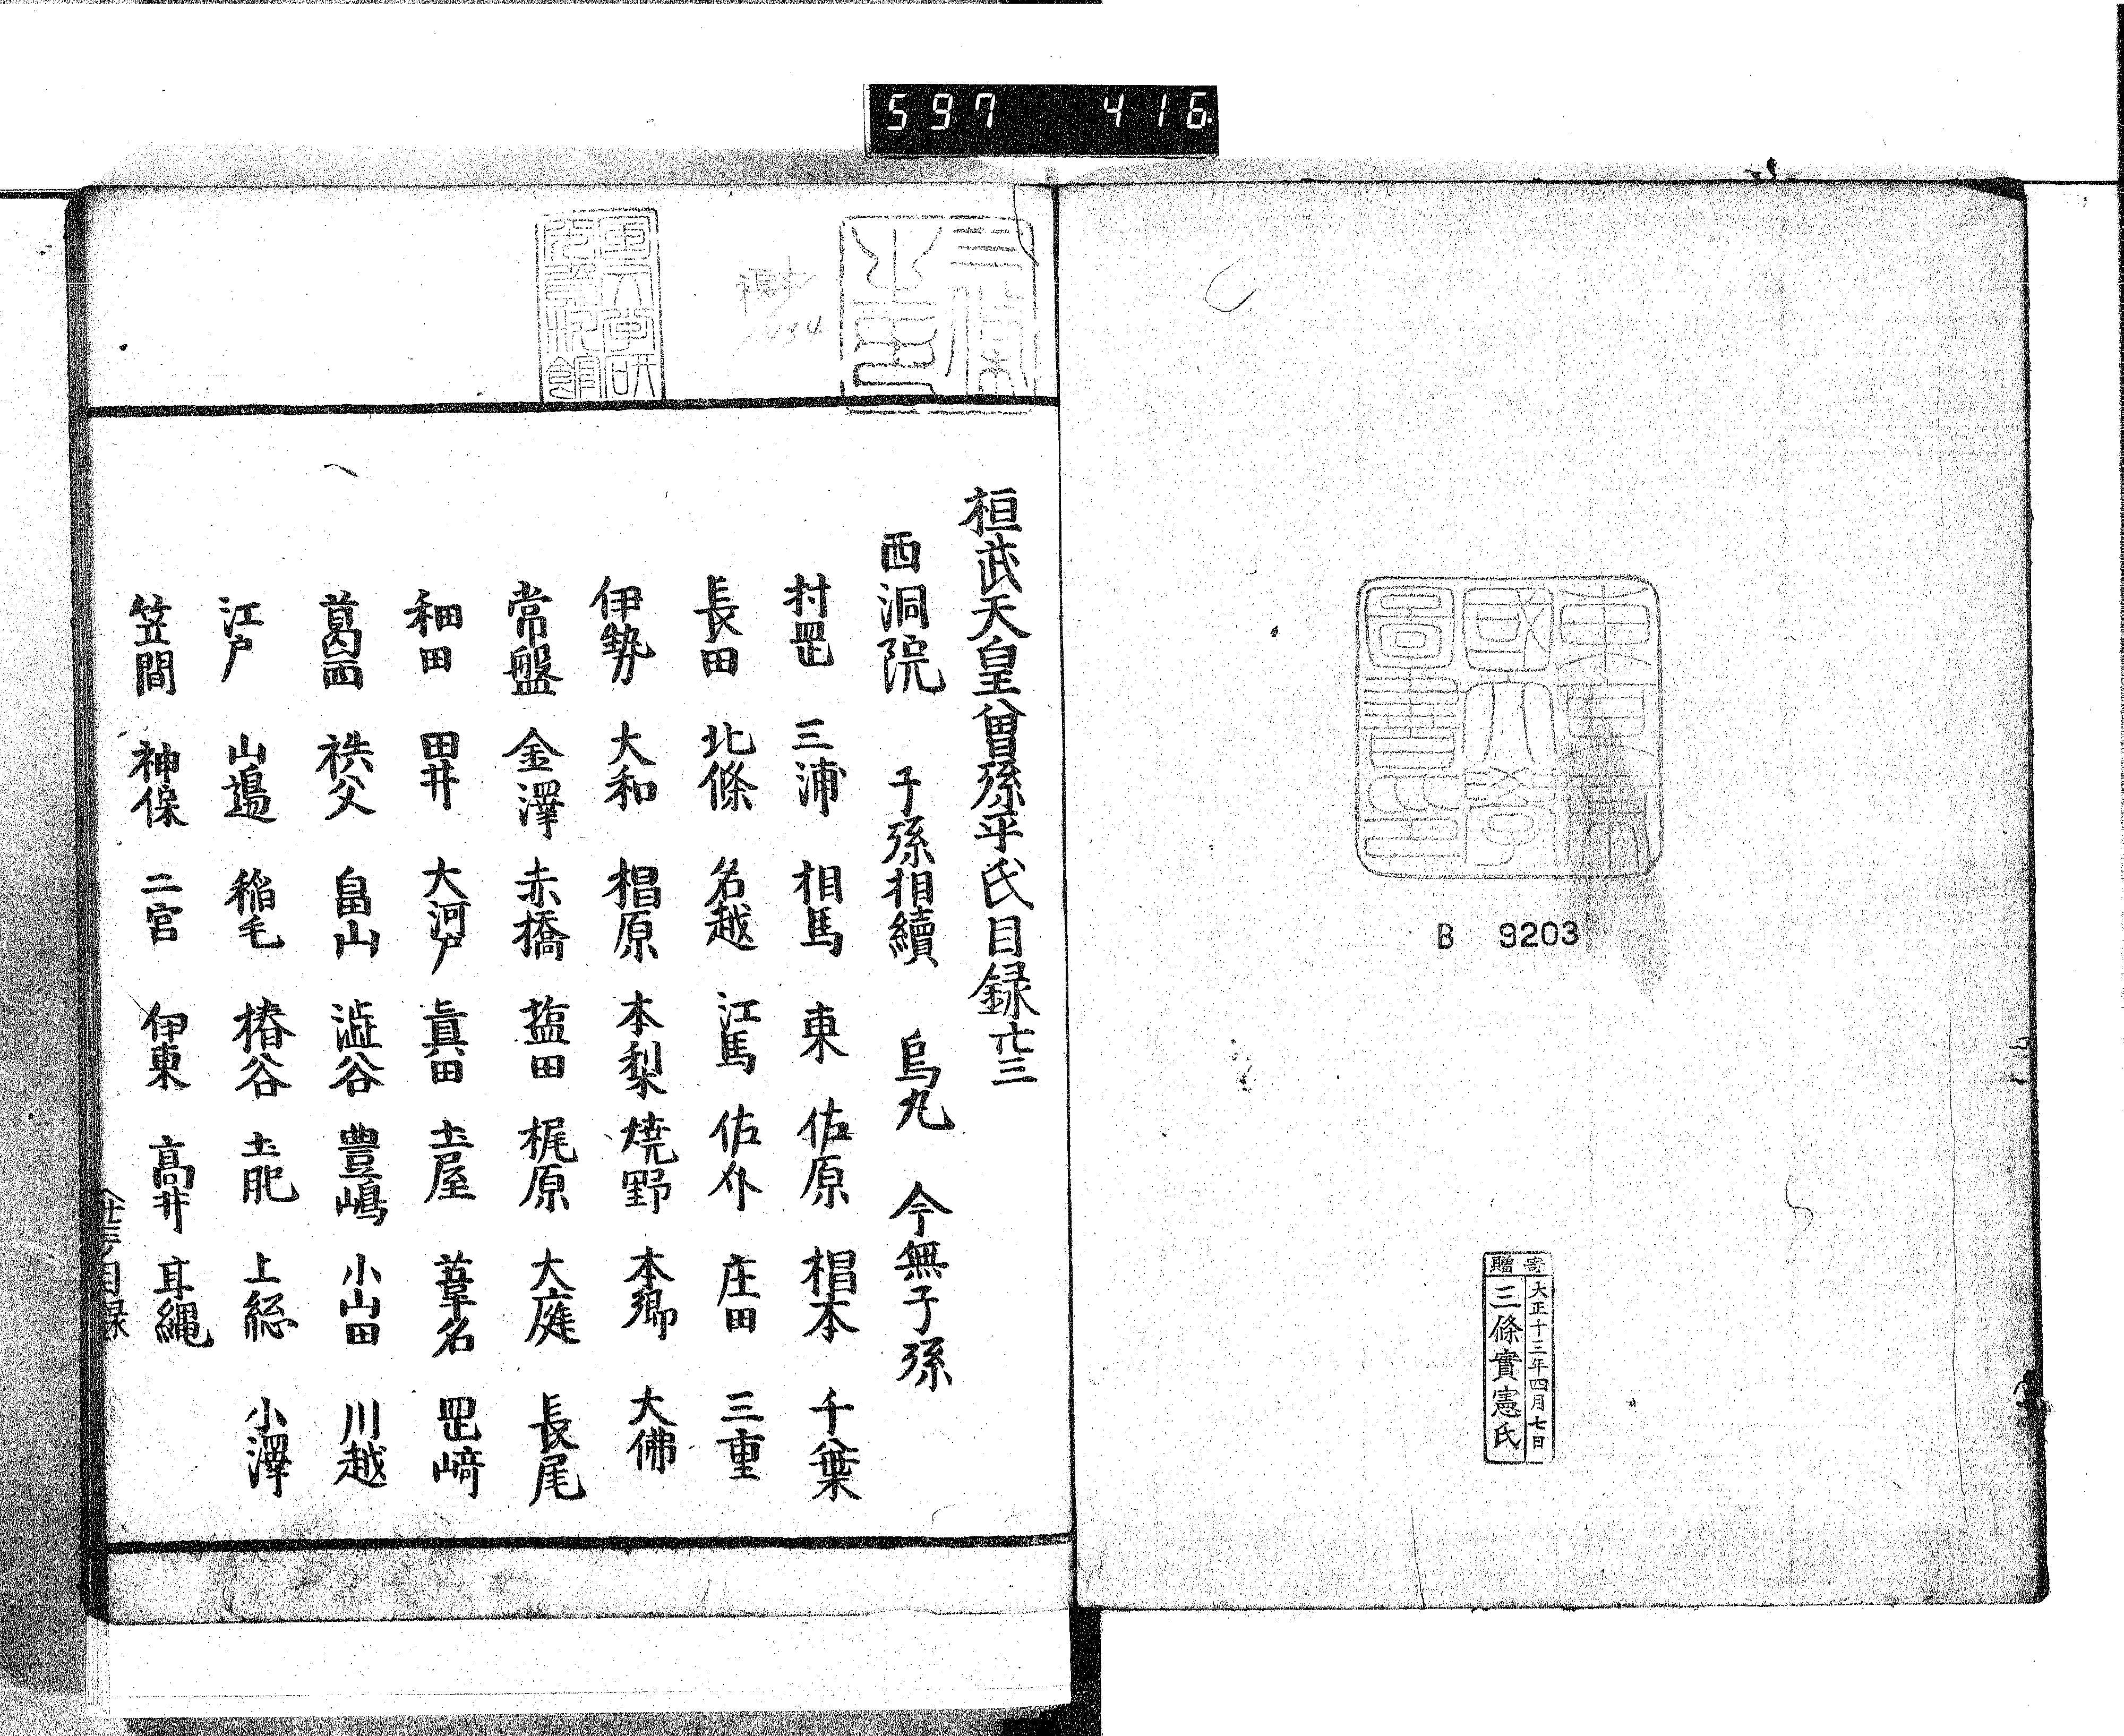 597 416
東京帝
國大學
圖書印
B 9203
寄贈
大正十三年四月七日
三條實憲氏
桓武天皇曾孫平氏目録廿三
西洞院 子孫相續 烏丸 今無子孫
村罡 三浦 相馬 東 佐原 椙本 千葉
長田 北條 名越 江馬 佐介 庄田 三重
伊勢 大和 椙原 本梨 焼野 本郷 大佛
常盤 金澤 赤橋 塩田 梶原 大庭 長尾
和田 田井 大河戸 眞田 土屋 葦名 罡﨑
葛西 秩父 畠山 澁谷 豊嶋 小山田 川越
江戸 山邊 稲毛 椿谷 土肥 上総 小澤
笠間 神保 二宮 伊東 髙井 耳縄
目録